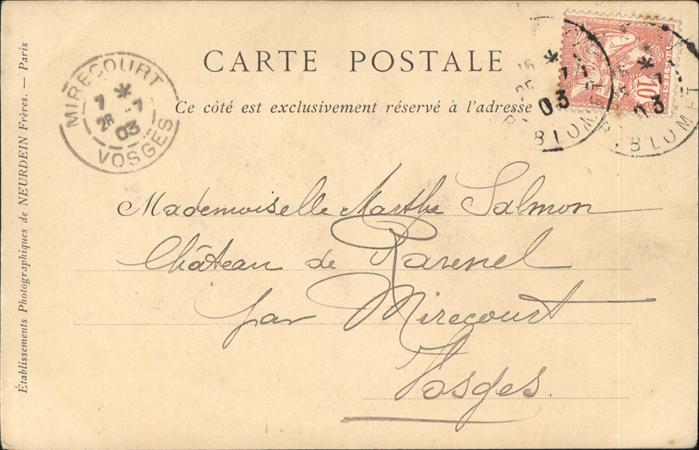 CARTE POSTALE
Ce côté est exclusivement réservé à l'adresse
MIRECOURT
7 * -7
26
03
VOSGES
10
03
BLOMET
03
BLOMET
Mademoiselle Marthe Salmon
Château de Ravenel
par Mirecourt
Vosges.
Établissements Photographiques de NEURDEIN Frères. — Paris